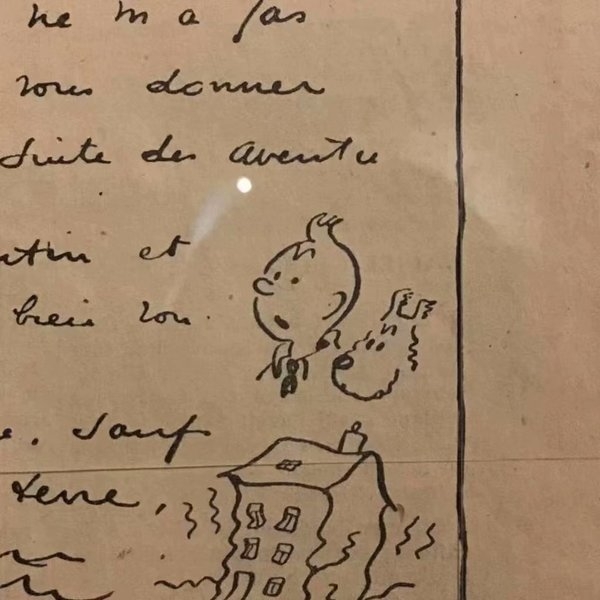 ne m'a pas
vous donner
suite des aventu
ntin et
bien vou
e, sauf
terre,